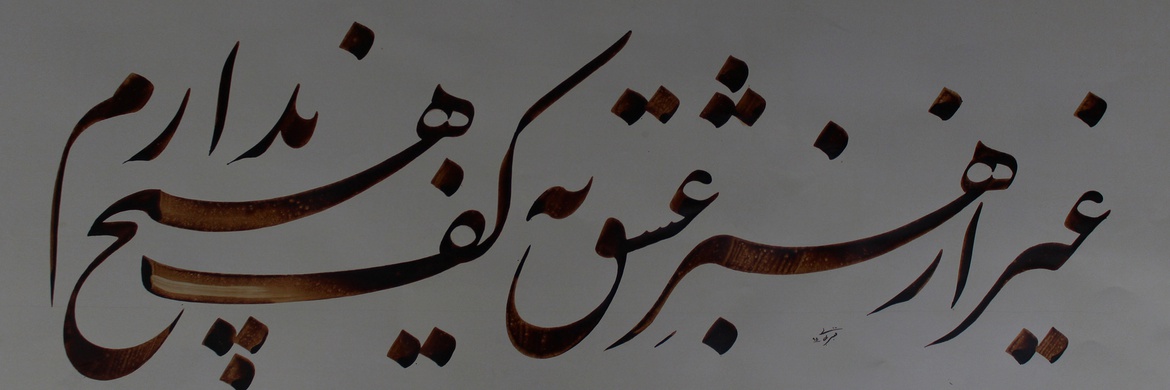 غیر از هنر عشق به کف هیچ ندارم